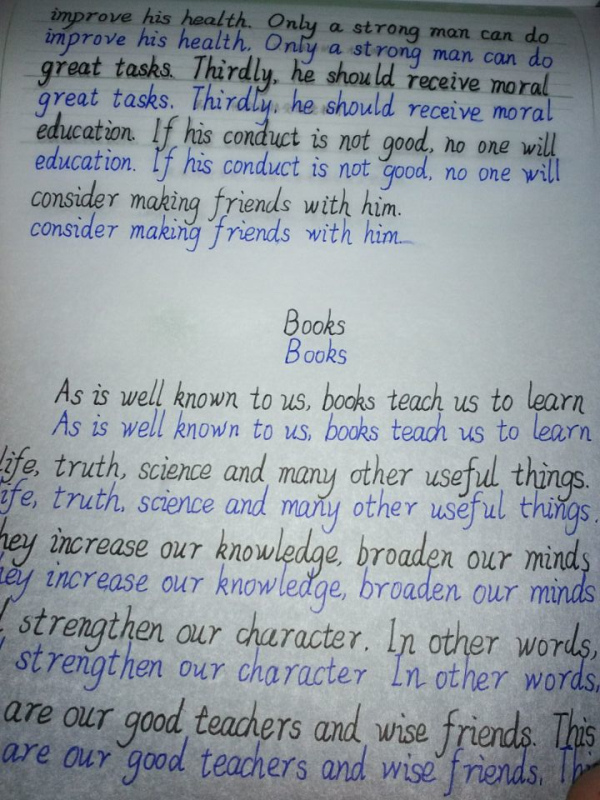 improve his health. Only a strong man can do
improve his health. Only a strong man can do
great tasks. Thirdly, he should receive moral
great tasks. Thirdly, he should receive moral
education. If his conduct is not good, no one will
education. If his conduct is not good, no one will
consider making friends with him.
consider making friends with him.
Books
Books
As is well known to us, books teach us to learn
As is well known to us, books teach us to learn
life, truth, science and many other useful things.
ife, truth, science and many other useful things.
hey increase our knowledge, broaden our minds
hey increase our knowledge, broaden our minds
strengthen our character. In other words,
strengthen our character In other words,
are our good teachers and wise friends. This
are our good teachers and wise friends.